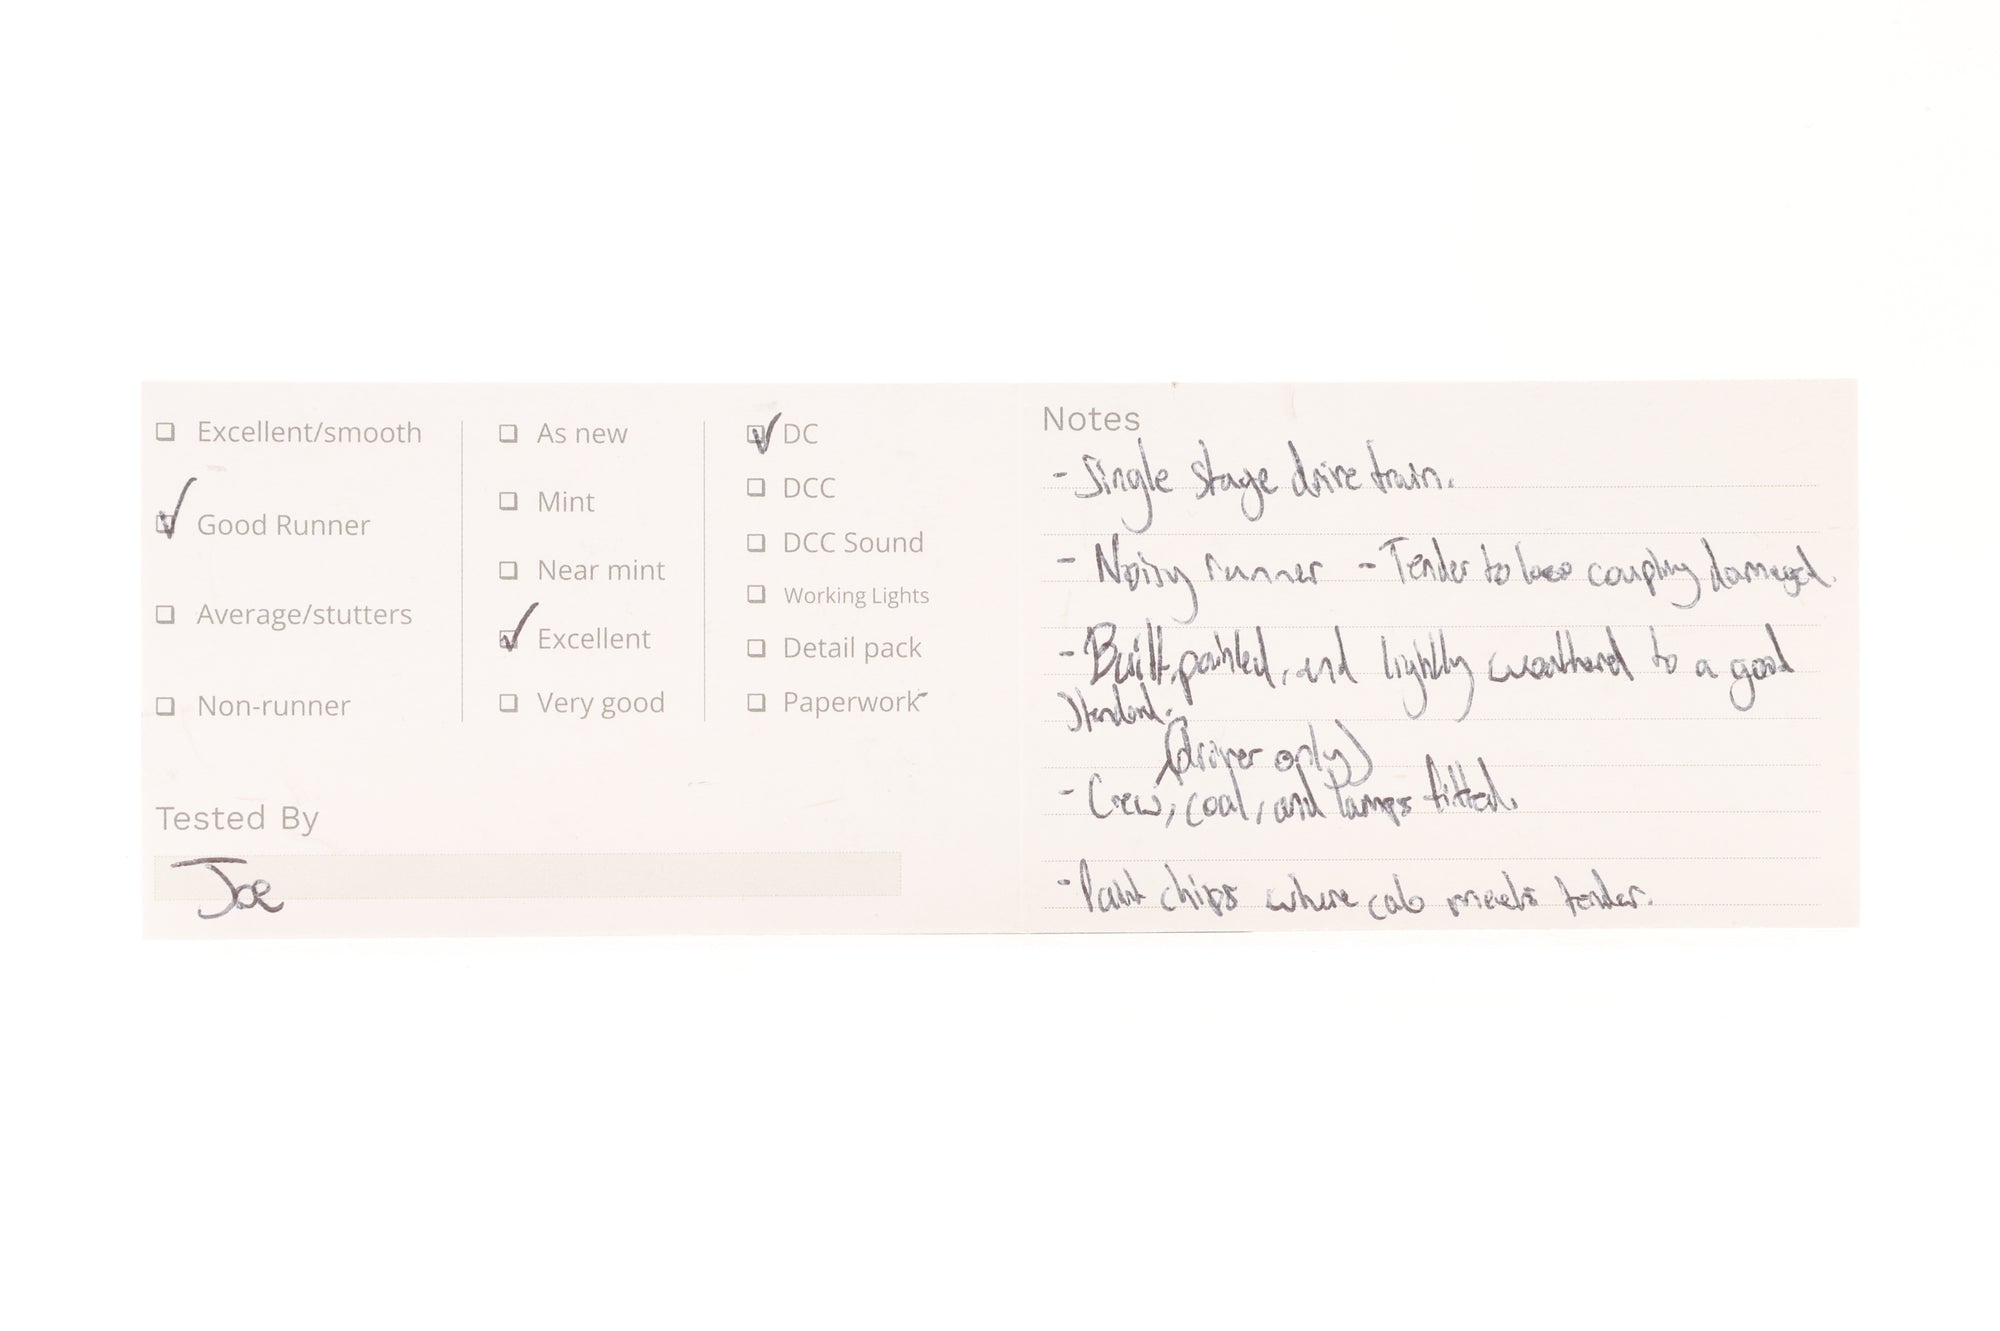 Excellent/smooth
Good Runner
Average/stutters
Non-runner
As new
Mint
Near mint
Excellent
Very good
DC
DCC
DCC Sound
Working Lights
Detail pack
Paperwork
Tested By
Joe
Notes
- Single stage drive train.
- Noisy runner - Tender to loco coupling damaged.
- Built, painted, and lightly weathered to a good
standard.
(driver only)
- Crew, coal, and lamps fitted.
- Paint chips where cab meets tender.